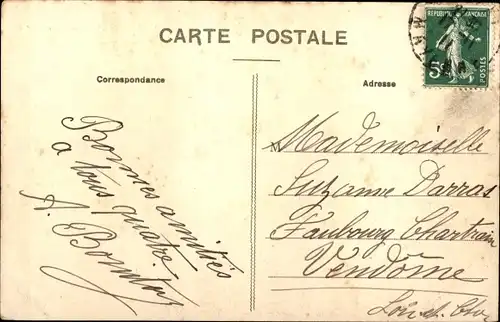 CARTE POSTALE
Correspondance
Adresse
REPUBLIQUE FRANÇAISE
5c
POSTES
Bonnes amitiés
à tous quatre.
A.
Mademoiselle
Suzanne Darras
Faubourg Chartrain
Vendôme
Loir et Cher